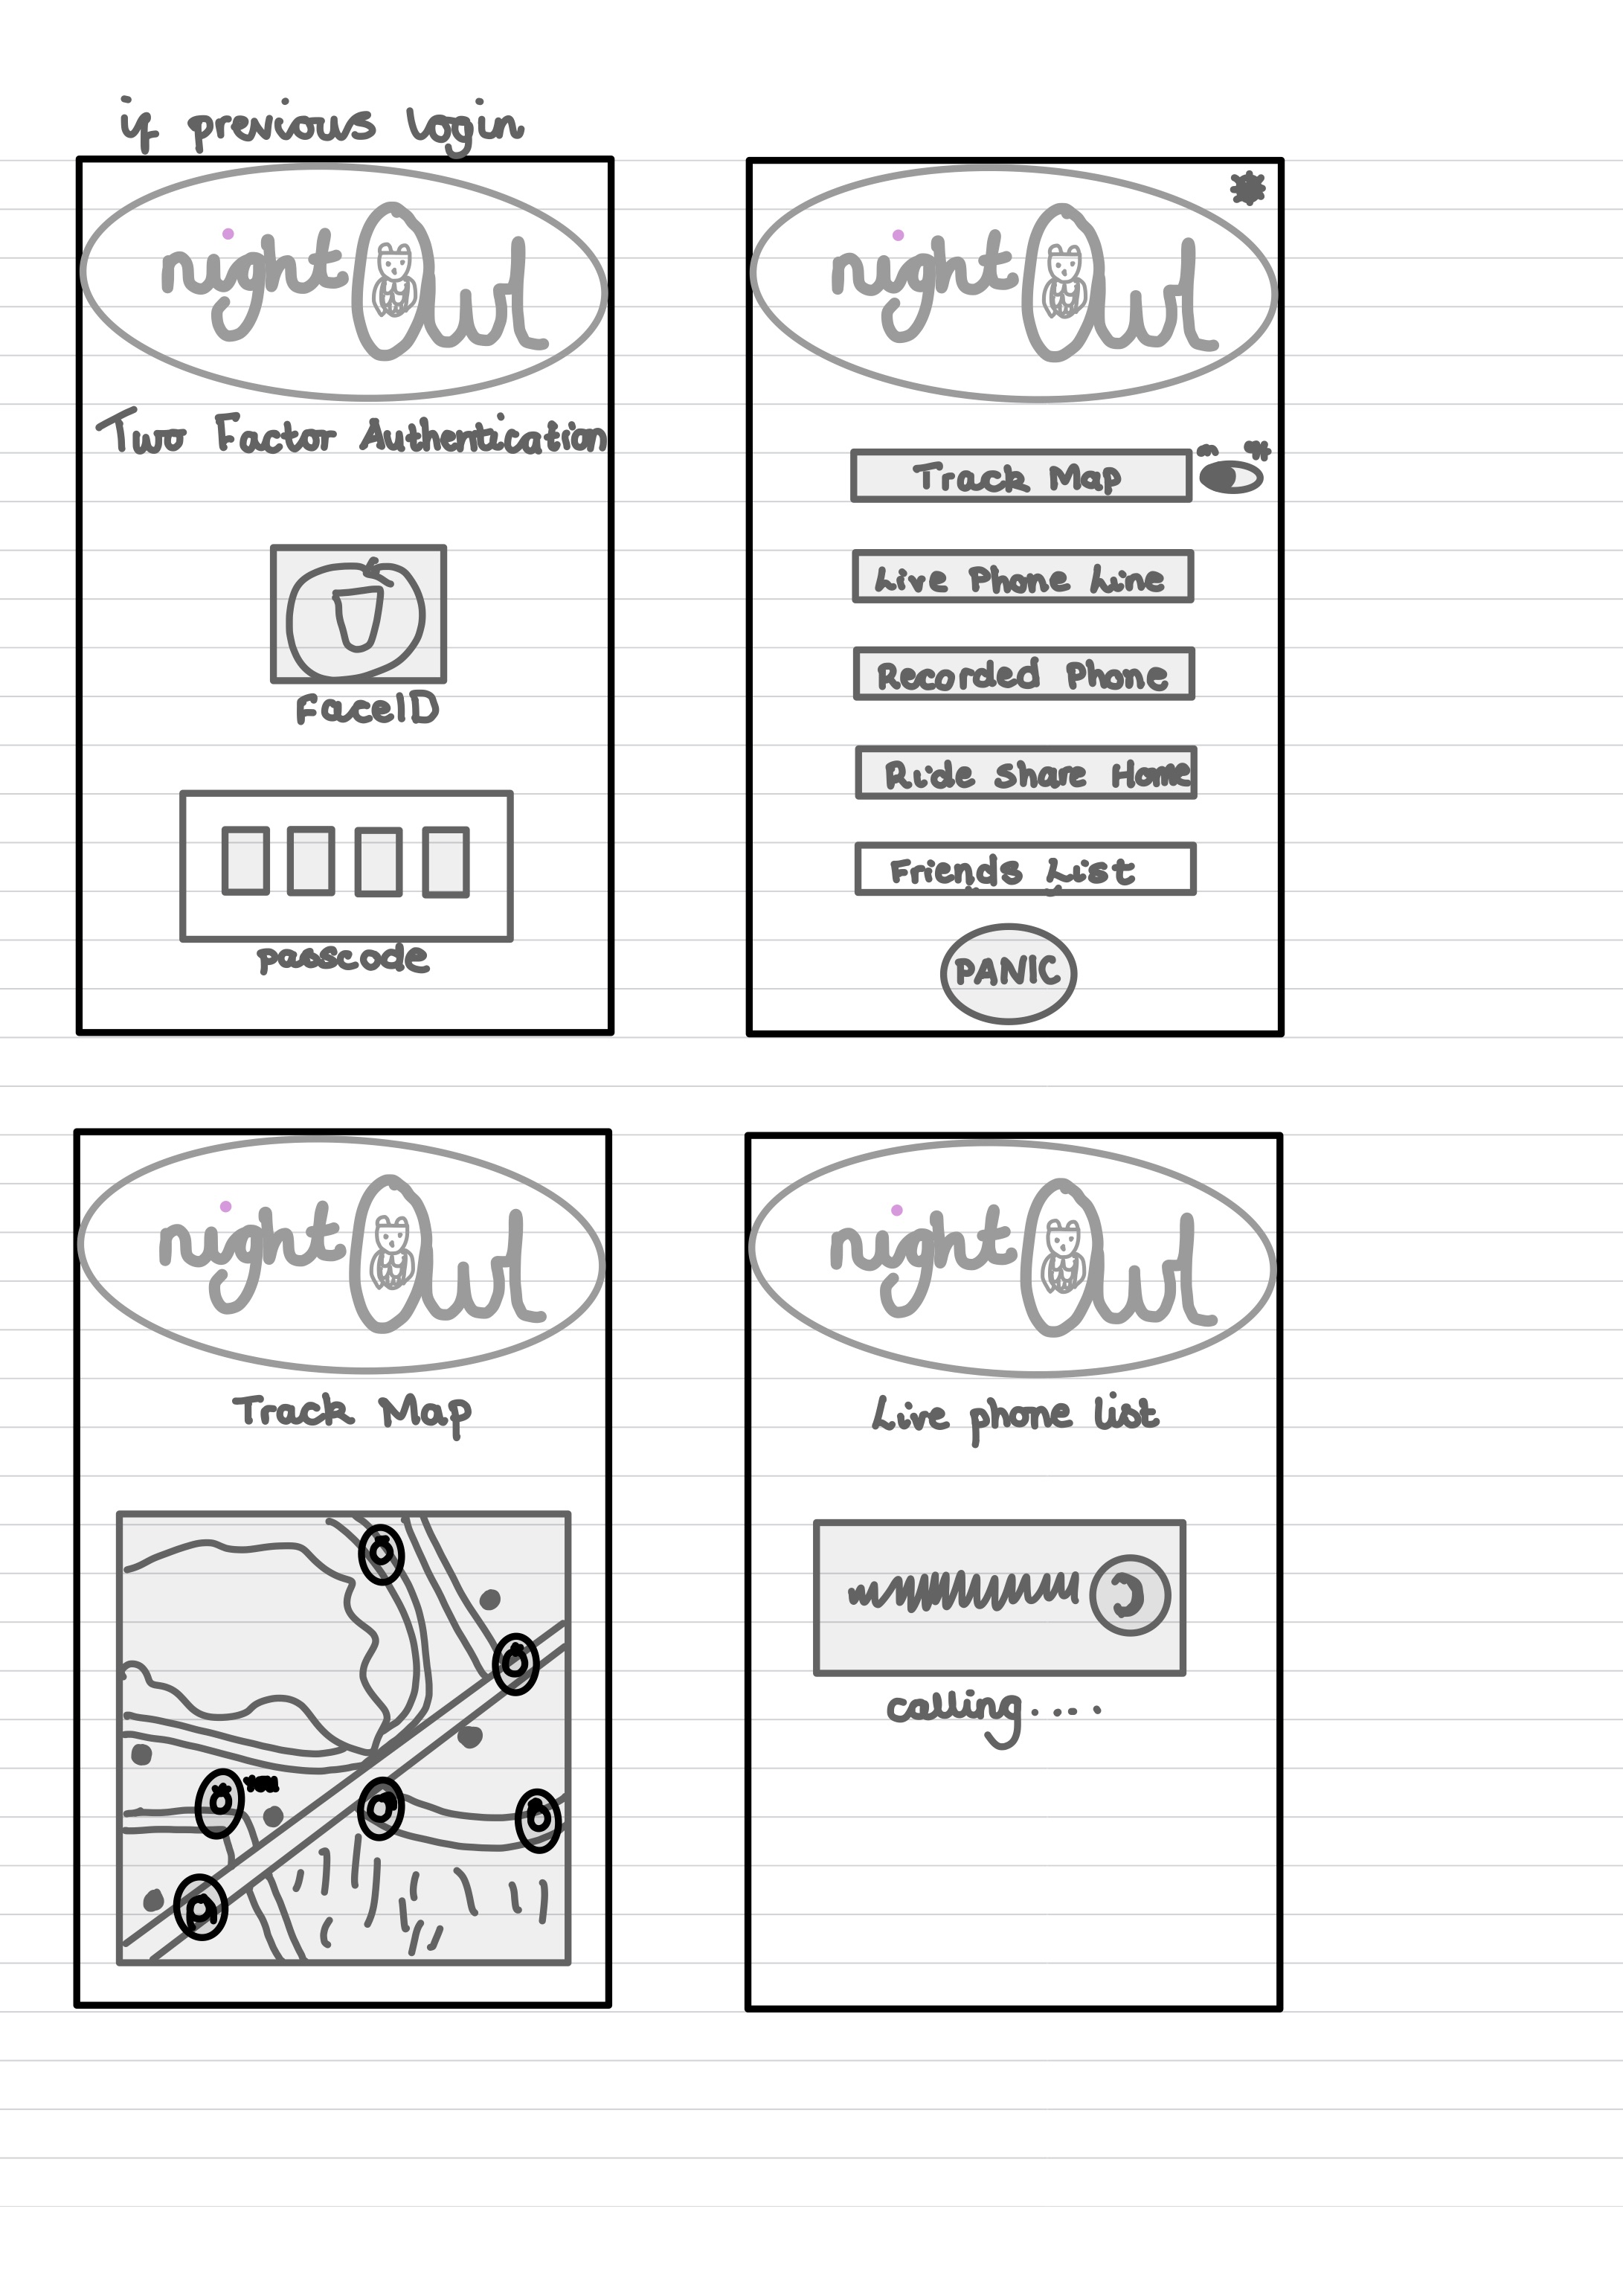 if previous login
night Out
Two Factor Authentication
faceID
passcode
night Out
on off
Track Map
Live Phone Line
Recorded Phone
Ride Share Home
Friends List
PANIC
night Out
Track Map
night Out
Live phone list
calling....